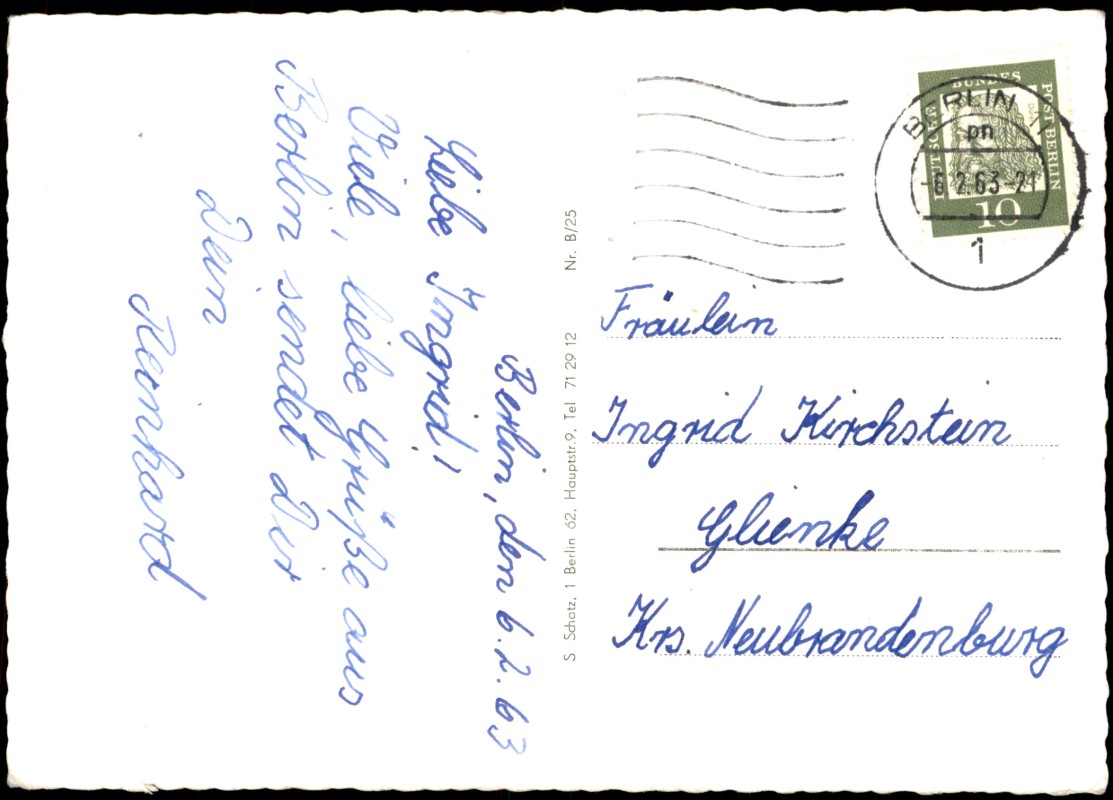 Berlin, den 6.2.63
Liebe Ingrid!
Viele, liebe Grüße aus
Berlin sendet Dir
Dein
Reinhard
S Schatz, 1 Berlin 62, Hauptstr. 9, Tel 71 29 12
Nr. B/25
DEUTSCHE BUNDESPOST BERLIN
10
BERLIN 11
pn
-6.2.63-21
1
Fräulein
Ingrid Kirchstein
Glienke
Krs. Neubrandenburg